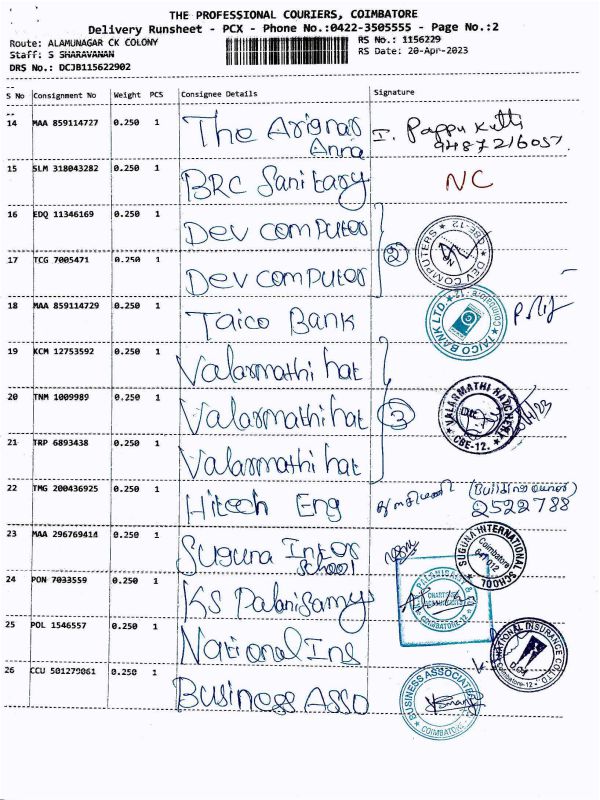 THE PROFESSIONAL COURIERS, COIMBATORE
Delivery Runsheet - PCX - Phone No.:0422-3505555 - Page No.:2
Route: ALAMUNAGAR CK COLONY RS No.: 1156229
Staff: S SHARAVANAN RS Date: 20-Apr-2023
DRS No.: DCJB115622902
S No Consignment No Weight PCS Consignee Details Signature
14 MAA 859114727 0.250 1 The Arignar Anna I. Pappu Kutti
9487216057.
15 SLM 318043282 0.250 1 BRC Sanitary NC
16 EDQ 11346169 0.250 1 Dev computer
2 DEV COMPUTERS CBE-12
17 TCG 7005471 0.250 1 Dev computer
18 MAA 859114729 0.250 1 Taico Bank TAICO BANK LTD. Coimbatore-12
19 KCM 12753592 0.250 1 Valarmathi hat
20 TNM 1009989 0.250 1 Valarmathi hat 3 VALARMATHI HATCHERY CBE-12.
21 TRP 6893438 0.250 1 Valarmathi hat
22 TMG 200436925 0.250 1 Hitech Eng (Building owner)
2522788
23 MAA 296769414 0.250 1 Suguna Inter School SUGUNA INTERNATIONAL SCHOOL Coimbatore 641012
24 PON 7033559 0.250 1 KS Palanisamy CHARTERED ACCOUNTANTS COIMBATORE-12
25 POL 1546557 0.250 1 National Ins NATIONAL INSURANCE CO.LTD. Coimbatore-12
26 CCU 501279061 0.250 1 Business Asso BUSINESS ASSOCIATES COIMBATORE